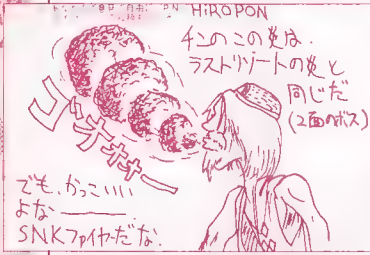 HiROPON
チンのこの炎は.
ラストリゾートの炎と
同じだ
(2面のボス)
ゴォオオオー
でも、かっこいい
よなー
SNKファイヤーだな.